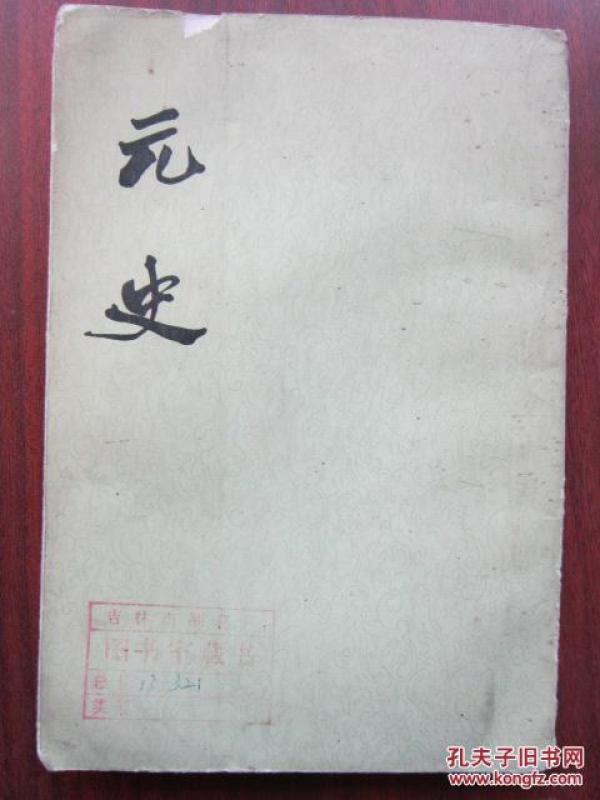 元史
吉林市
图书室藏书
总
13-321
类
孔夫子旧书网
www.kongfz.com